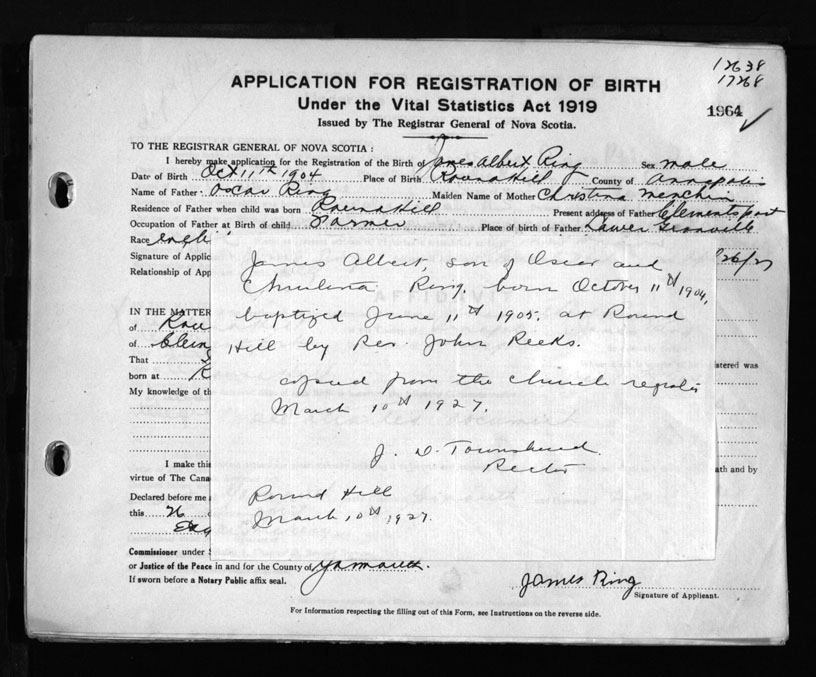 12638
17268
APPLICATION FOR REGISTRATION OF BIRTH
Under the Vital Statistics Act 1919
1964
Issued by The Registrar General of Nova Scotia.
TO THE REGISTRAR GENERAL OF NOVA SCOTIA :
I hereby make application for the Registration of the Birth of James Albert Ring Sex male
Date of Birth Oct 11th 1904 Place of Birth Round Hill County of Annapolis
Name of Father Oscar Ring Maiden Name of Mother Christina
Residence of Father when child was born Round Hill Present address of Father Clementsport
Occupation of Father at Birth of child Farmer Place of birth of Father Lower Granville
Race
Signature of Applic 26/27
Relationship of App
James Albert, son of Oscar and
Christina Ring, born October 11th 1904,
baptized June 11th 1905, at Round
Hill by Rev. John Reeks.
copied from the church register
March 10th 1927.
J. D. Townshend.
Rector
Round Hill
March 10th 1927.
IN THE MATTER
of Rou
of Clem
That
born at R stered was
My knowledge of th
I make thi ath and by
virtue of The Cana
Declared before me
this 26
Commissioner under
or Justice of the Peace in and for the County of Yarmouth.
If sworn before a Notary Public affix seal.
James Ring
Signature of Applicant.
For Information respecting the filling out of this Form, see Instructions on the reverse side.